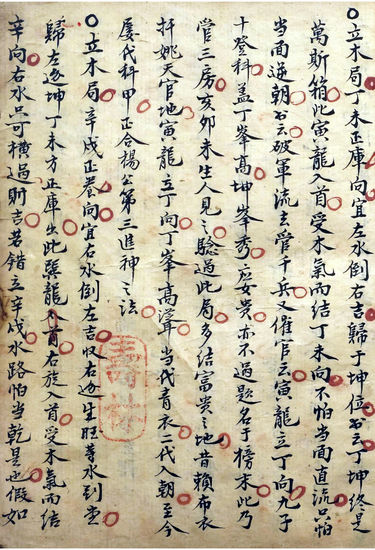 立木局丁未正庫向宜左水倒右吉歸于坤位書云丁坤終是
萬斯箱此寅龍入首受木氣而結丁未向不怕当面直流只怕
当面逆朝書云破軍流去管千兵又催官云寅龍立丁向九子
十登科盖丁峯高坤峯秀應女貴亦不過題名于榜末此乃
管三房亥卯未生人見之驗過此局多結富貴之地昔賴布衣
扦姚天官地寅龍立丁向丁峯高聳当代青衣二代入朝至今
屡代科甲正合楊公第三進神之法
立木局辛戌正養向宜右水倒左吉收右边生旺等水到堂
歸左边坤丁未方正庫出此龍入首右旋入首受木氣而結
辛向右水可横過則吉若錯立辛戌水路怕当乾是也假如